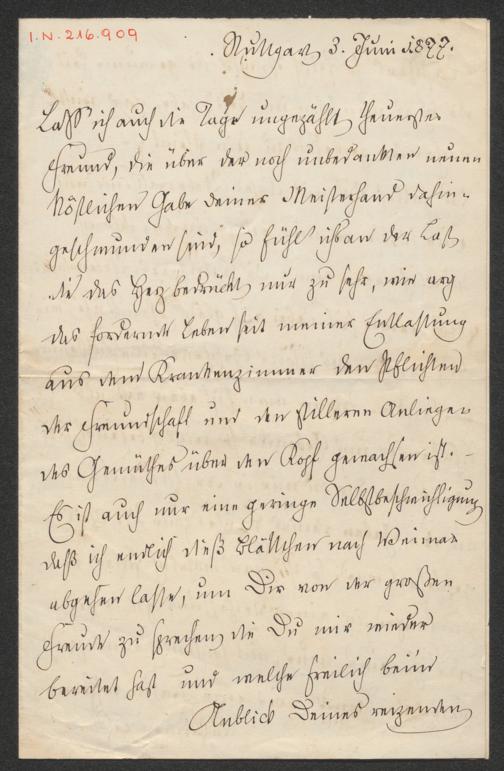 I.N. 216.909
Stuttgart 3. Juni 1877.
Lass' ich auch die Tage ungezählt, theuerster
Freund, die über der noch unbedankten neuen
köstlichen Gabe Deiner Meisterhand dahin-
geschwunden sind, so fühl' ich an der Last
die das Herz bedrückt, nur zu sehr, wie arg
das fordernde Leben seit meiner Entlassung
aus dem Krankenzimmer den Pflichten
der Freundschaft und den stilleren Anliegen
des Gemüthes über den Kopf gewachsen ist. –
Es ist auch nur eine geringe Selbstbeschwichtigung
daß ich endlich dieß Blättchen nach Weimar
abgehen lasse, um Dir von der großen
Freude zu sprechen, die Du mir wieder
bereitet hast und welche freilich beim
Anblick Deines reizenden